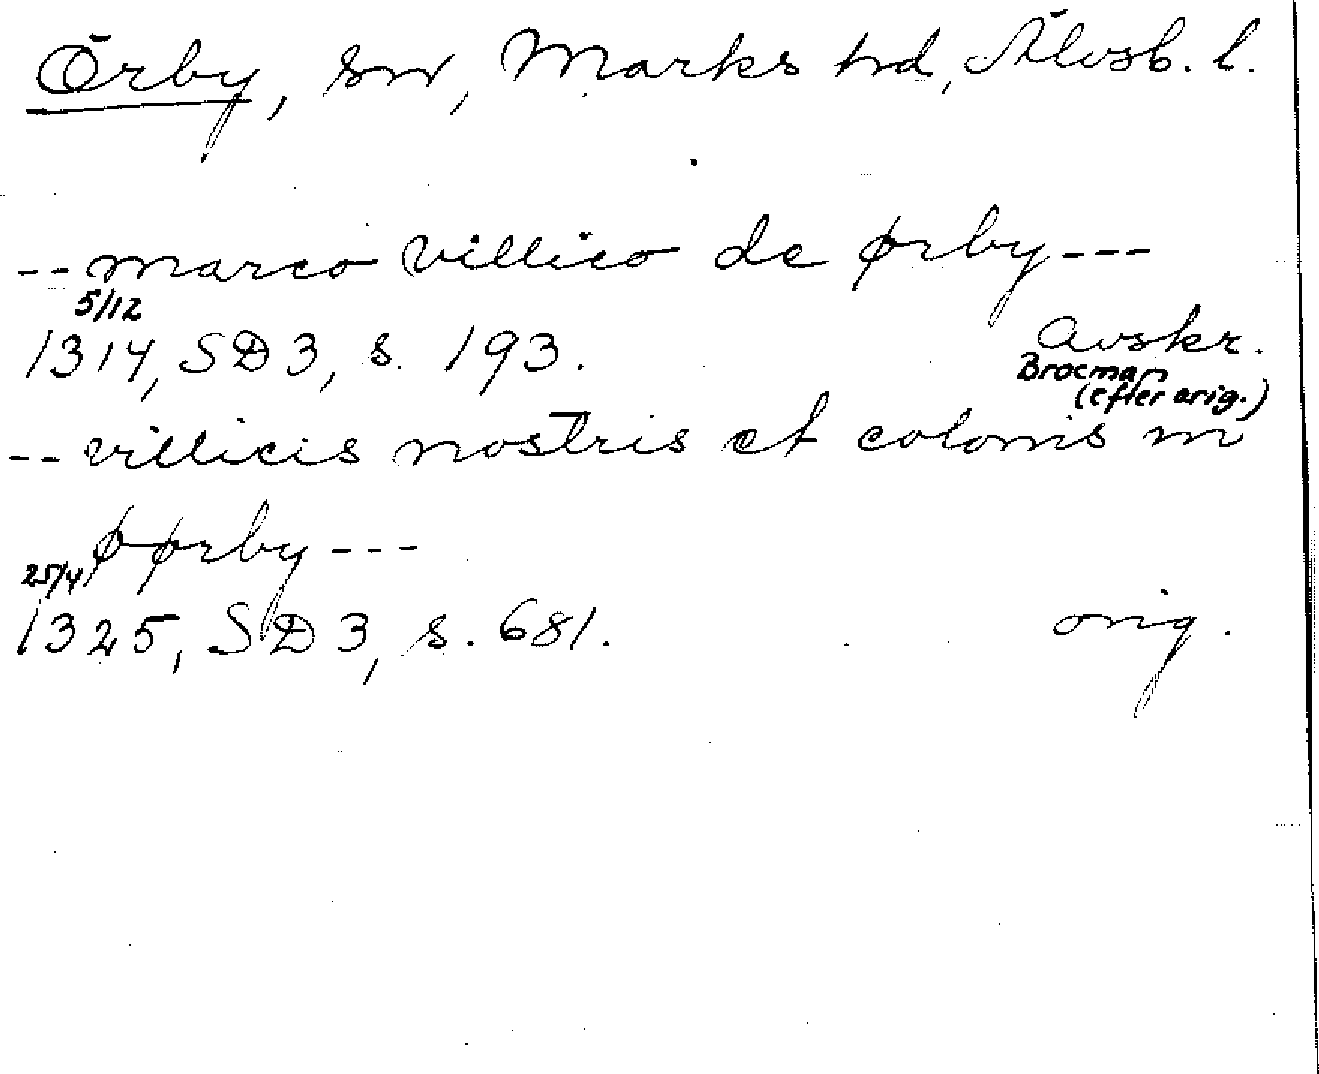 Örby, sn, Marks hd, Älvsb. l.
-- marco villico de ørby ---
5/12
1314, SD 3, s. 193. Avskr.
Brocman
(efter orig.)
-- villicis nostris et colonis in
øørby ---
25/4
1325, SD 3, s. 681. orig.